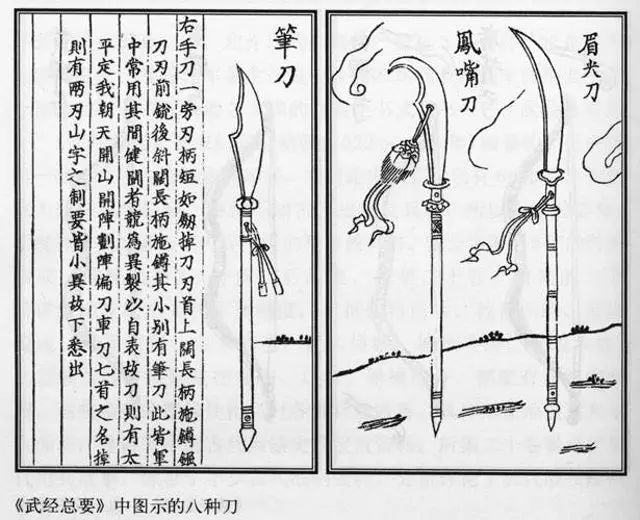 眉尖刀
鳳嘴刀
筆刀
右手刀一旁刃柄短如劒掉刀刃首上闊長柄施鐏
刀刃前銳後斜闊長柄施鐏其小別有筆刀此皆軍
中常用其間健鬬者競爲異製以自表故刀則有太
平定我朝天開山開陣劃陣偏刀車刀匕首之名掉
則有兩刃山字之制要皆小異故下悉出
《武经总要》中图示的八种刀